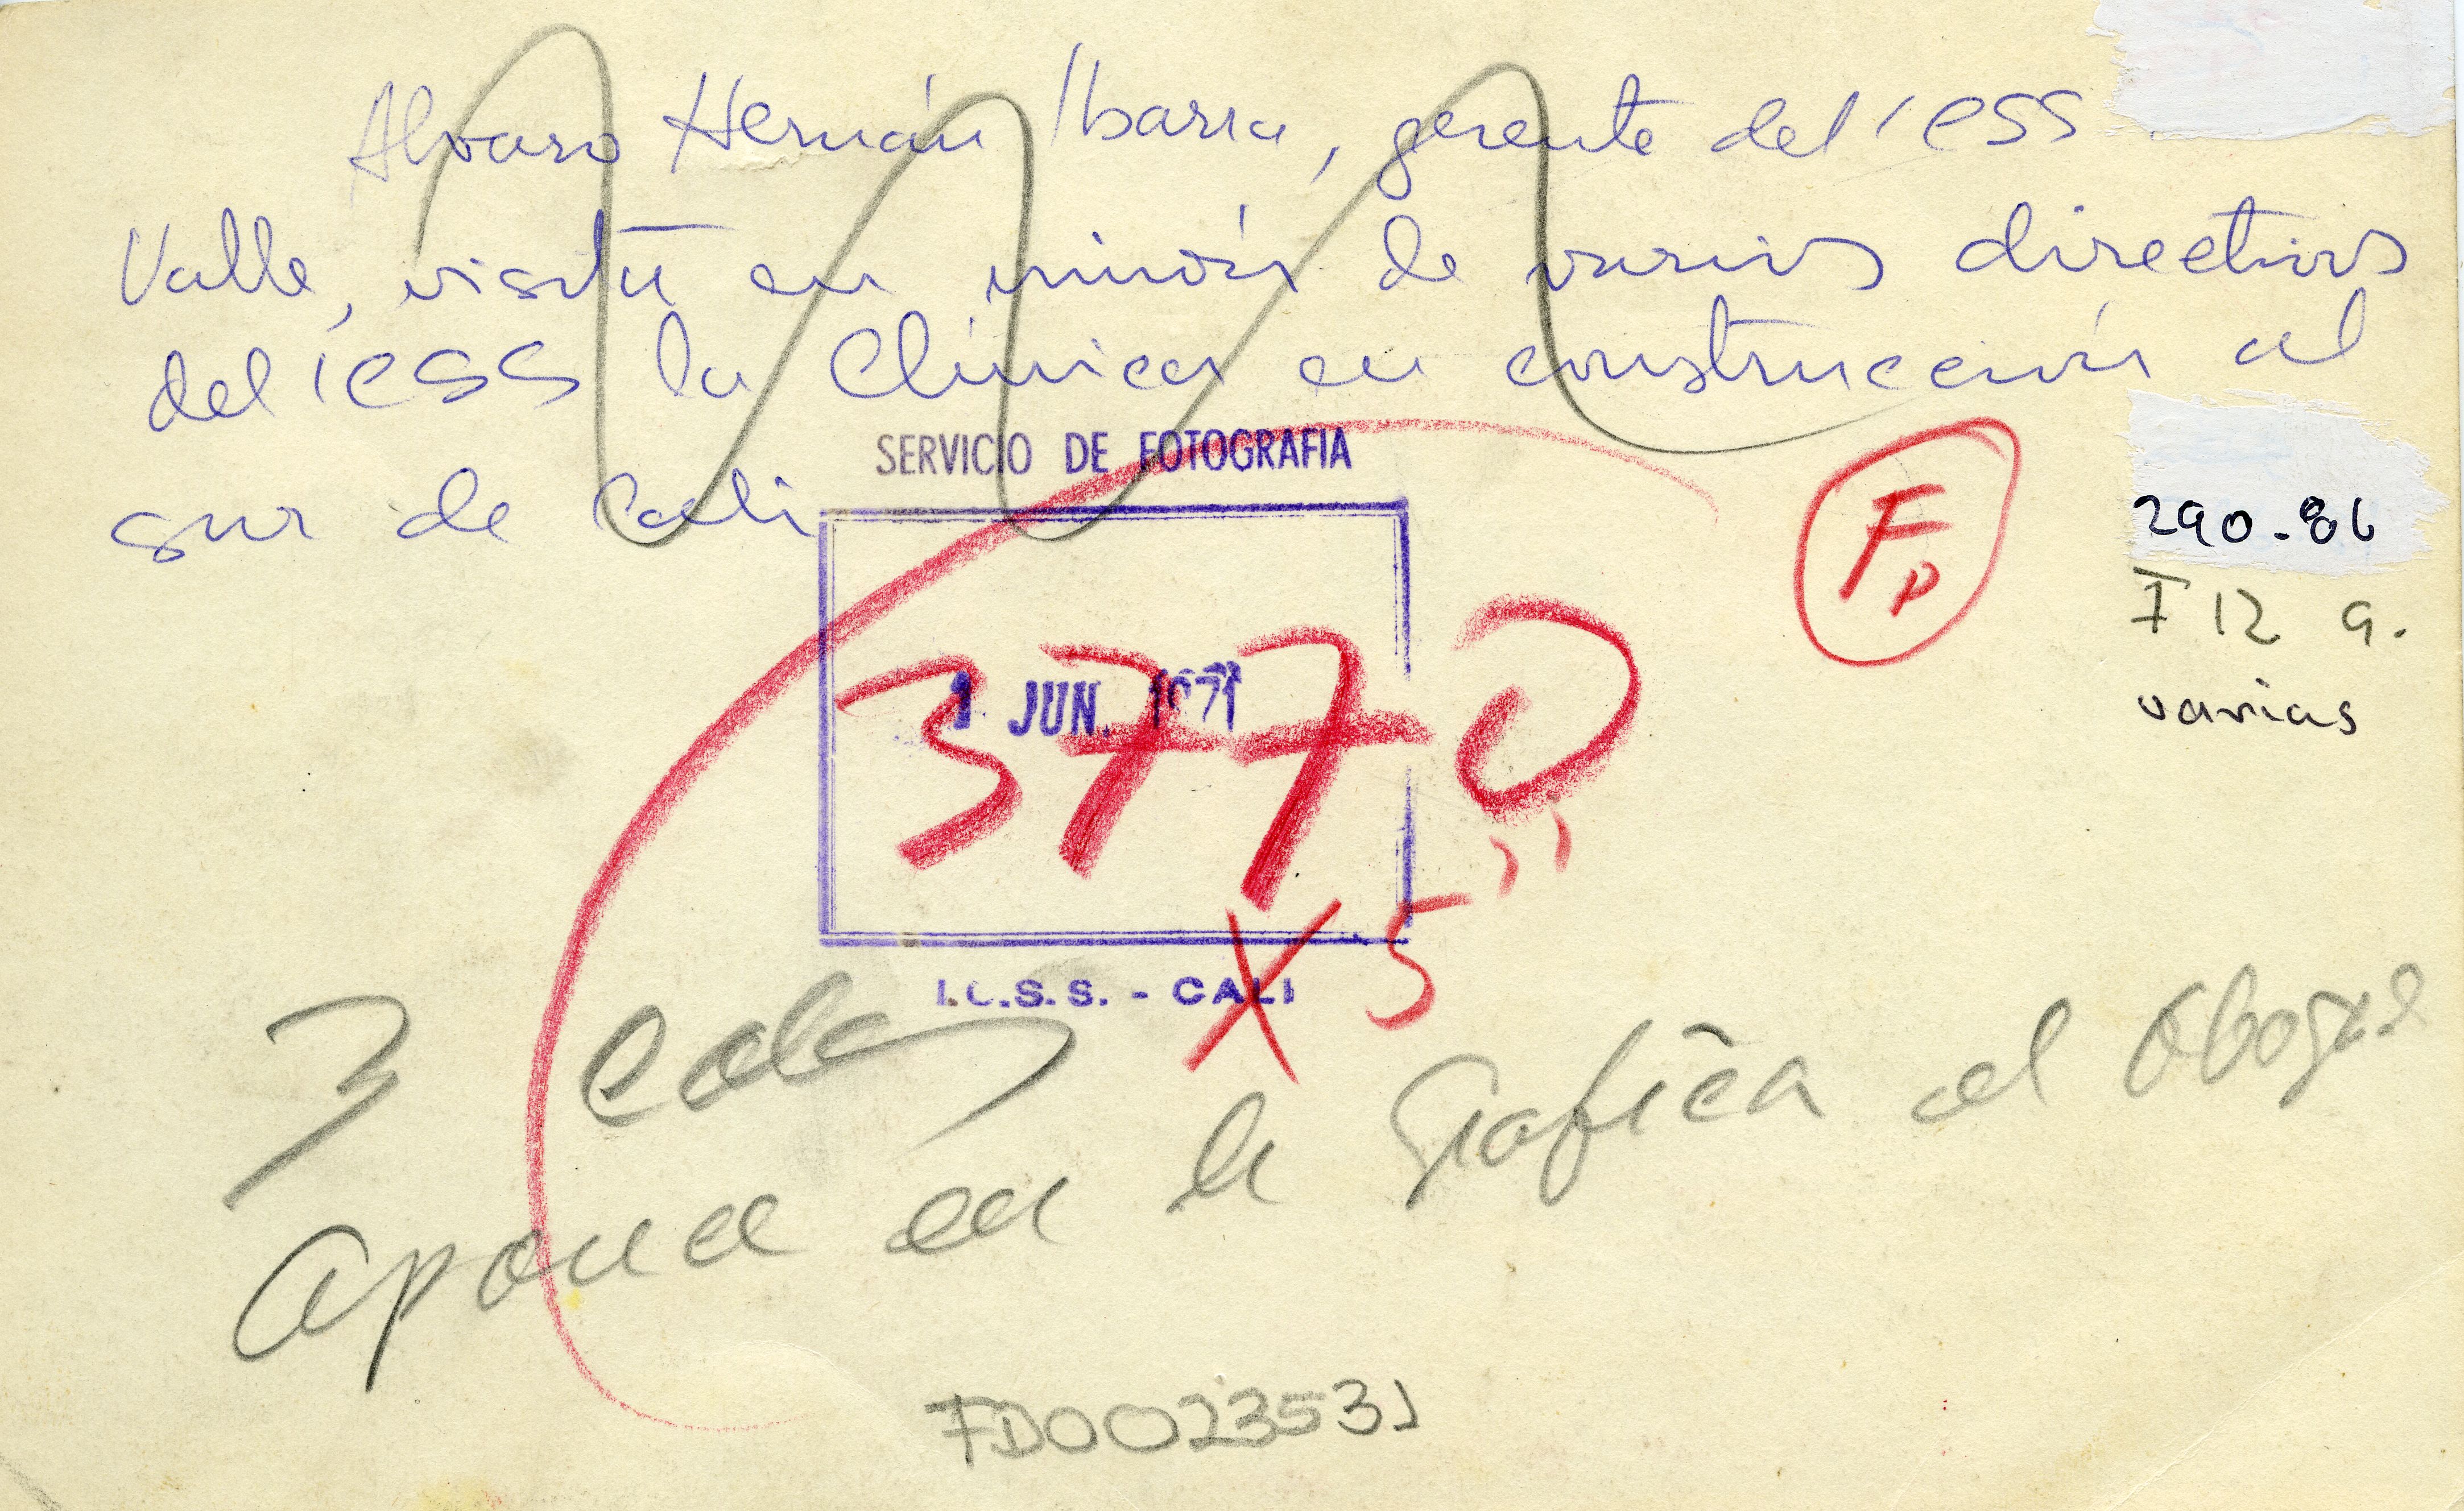 Alvaro Hernán Ibarra, gerente del ICSS
Valle, visitó en unión de varios directivos
del ICSS la Clínica en construcción al
sur de Cali
SERVICIO DE FOTOGRAFIA
1 JUN. 1971
I.C.S.S. - CALI
3770
X 5"
Fp
290-86
F 12 9.
varias
3 cols
aparece en la Gráfica el
FD0023531